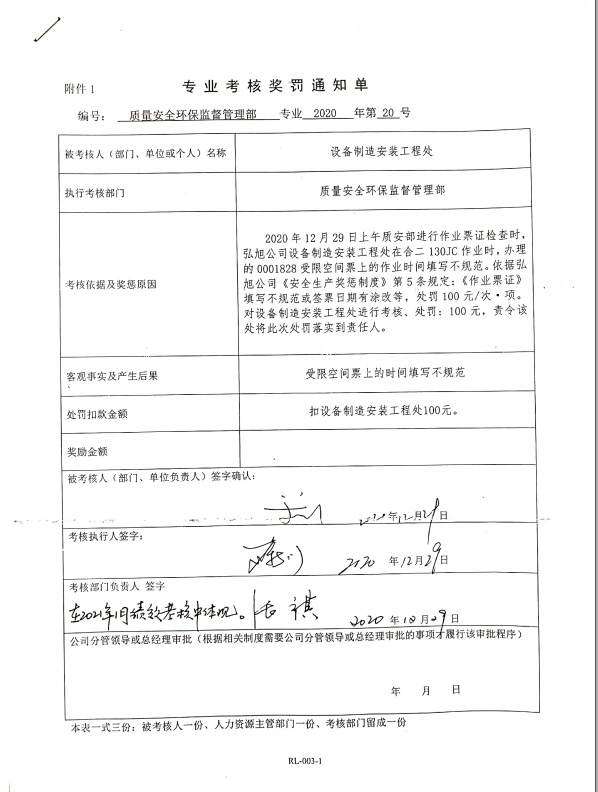 附件1
专业考核奖罚通知单
编号： 质量安全环保监督管理部 专业 2020 年第 20 号
被考核人（部门、单位或个人）名称 设备制造安装工程处
执行考核部门 质量安全环保监督管理部
考核依据及奖惩原因
2020年12月29日上午质安部进行作业票证检查时，
弘旭公司设备制造安装工程处在合二130JC作业时，办理
的0001828受限空间票上的作业时间填写不规范。依据弘
旭公司《安全生产奖惩制度》第5条规定：《作业票证》
填写不规范或签票日期有涂改等，处罚100元/次·项。
对设备制造安装工程处进行考核、处罚：100元，责令该
处将此次处罚落实到责任人。
客观事实及产生后果 受限空间票上的时间填写不规范
处罚扣款金额 扣设备制造安装工程处100元。
奖励金额
被考核人（部门、单位负责人）签字确认：
2020年12月29日
考核执行人签字：
2020年12月29日
考核部门负责人 签字
在2021年1月绩效考核中体现。
2020年12月29日
公司分管领导或总经理审批（根据相关制度需要公司分管领导或总经理审批的事项才履行该审批程序）
年 月 日
本表一式三份：被考核人一份、人力资源主管部门一份、考核部门留成一份
RL-003-1